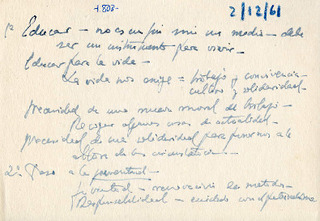 -1808-
2/12/61
1º Educar - no es un fin sino un medio - debe
ser un instrumento para vivir -
Educar para la vida -
La vida nos exige = trabajo y convivencia
cultura y solidaridad -
necesidad de una nueva moral de trabajo -
Recoger algunas cosas de actualidad -
necesidad de una solidaridad para ponernos a la
altura de las circunstancias -
2º: Paso a la juventud -
Juventud - renovación los métodos -
Responsabilidad - cuidado con el paternalismo